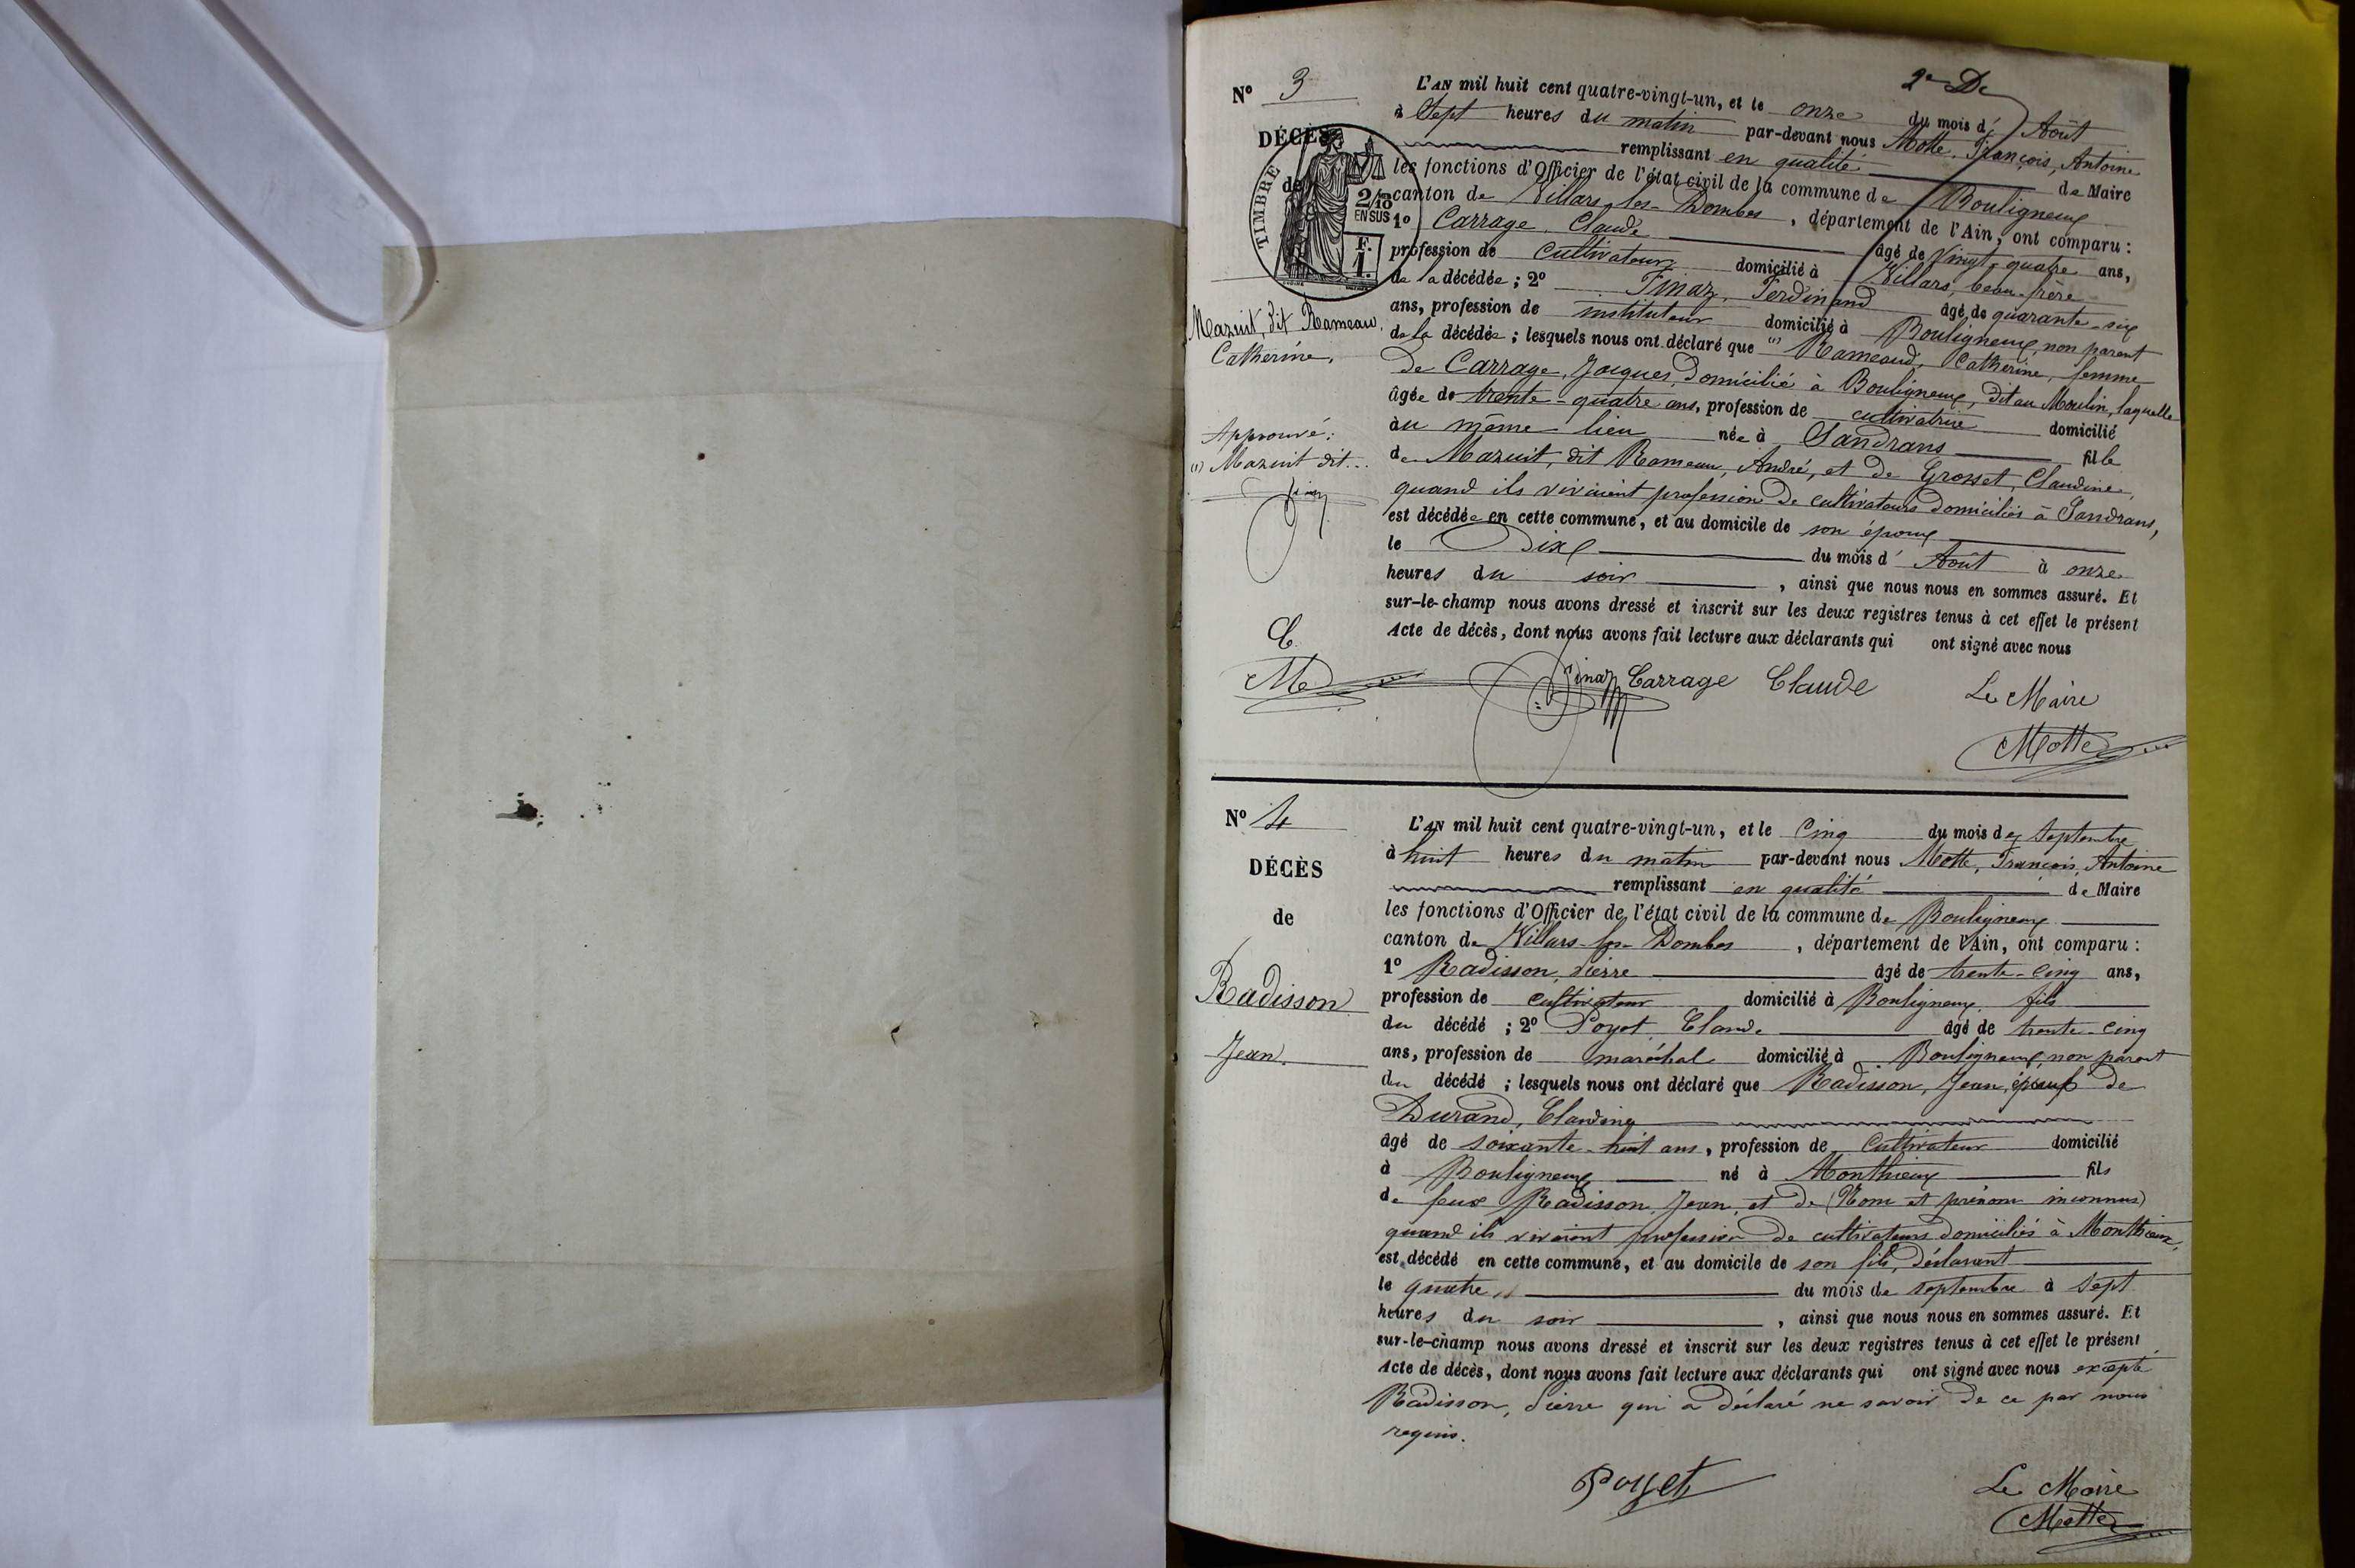 2e De
No 3
DÉCÈS
de
TIMBRE
2/10
EN SUS
F.
1.
Mazuit, dit Rameau,
Catherine,
Approuvé:
(1) Mazuit dit...
Finaz
C.
Mo
L'AN mil huit cent quatre-vingt-un, et le onze du mois d' Août
à Sept heures du matin par-devant nous Motte, François, Antoine
remplissant en qualité de Maire
les fonctions d'Officier de l'état civil de la commune de Bouligneux
canton de Villars-les-Dombes, département de l'Ain, ont comparu :
1o Carrage, Claude âgé de vingt-quatre ans,
profession de cultivateur domicilié à Villars, beau-frère
de la décédée ; 2o Finaz, Ferdinand âgé de quarante-six
ans, profession de instituteur domicilié à Bouligneux, non parent
de la décédée ; lesquels nous ont déclaré que (1) Rameaud, Catherine, femme
de Carrage, Jacques, domicilié à Bouligneux, dit au Moulin, laquelle
âgée de trente-quatre ans, profession de cultivatrice domicilié
au même lieu née à Sandrans fille
de Mazuit, dit Rameau, André, et de Grosset, Claudine,
quand ils vivaient profession de cultivateurs domiciliés à Sandrans,
est décédée en cette commune, et au domicile de son époux
le Dix du mois d' Août à onze
heures du soir, ainsi que nous nous en sommes assuré. Et
sur-le-champ nous avons dressé et inscrit sur les deux registres tenus à cet effet le présent
Acte de décès, dont nous avons fait lecture aux déclarants qui ont signé avec nous
Finaz Carrage Claude Le Maire
Motte
No 4
DÉCÈS
de
Radisson
Jean.
L'AN mil huit cent quatre-vingt-un, et le Cinq du mois de Septembre
à huit heures du matin par-devant nous Motte, François, Antoine
remplissant en qualité de Maire
les fonctions d'Officier de l'état civil de la commune de Bouligneux
canton de Villars-les-Dombes, département de l'Ain, ont comparu :
1o Radisson, Pierre âgé de trente-cinq ans,
profession de cultivateur domicilié à Bouligneux, fils
du décédé ; 2o Poyet, Claude âgé de trente-cinq
ans, profession de maréchal domicilié à Bouligneux, non parent
du décédé ; lesquels nous ont déclaré que Radisson, Jean, époux de
Durand, Claudine
âgé de soixante-huit ans, profession de Cultivateur domicilié
à Bouligneux né à Monthieux fils
de feux Radisson, Jean, et de (Nom et prénom inconnus)
quand ils vivaient profession de cultivateurs domiciliés à Monthieux,
est décédé en cette commune, et au domicile de son fils, déclarant
le quatre du mois de septembre à Sept
heures du soir, ainsi que nous nous en sommes assuré. Et
sur-le-champ nous avons dressé et inscrit sur les deux registres tenus à cet effet le présent
Acte de décès, dont nous avons fait lecture aux déclarants qui ont signé avec nous excepté
Radisson, Pierre qui a déclaré ne savoir de ce par nous
requis.
Poyet Le Maire
Motte